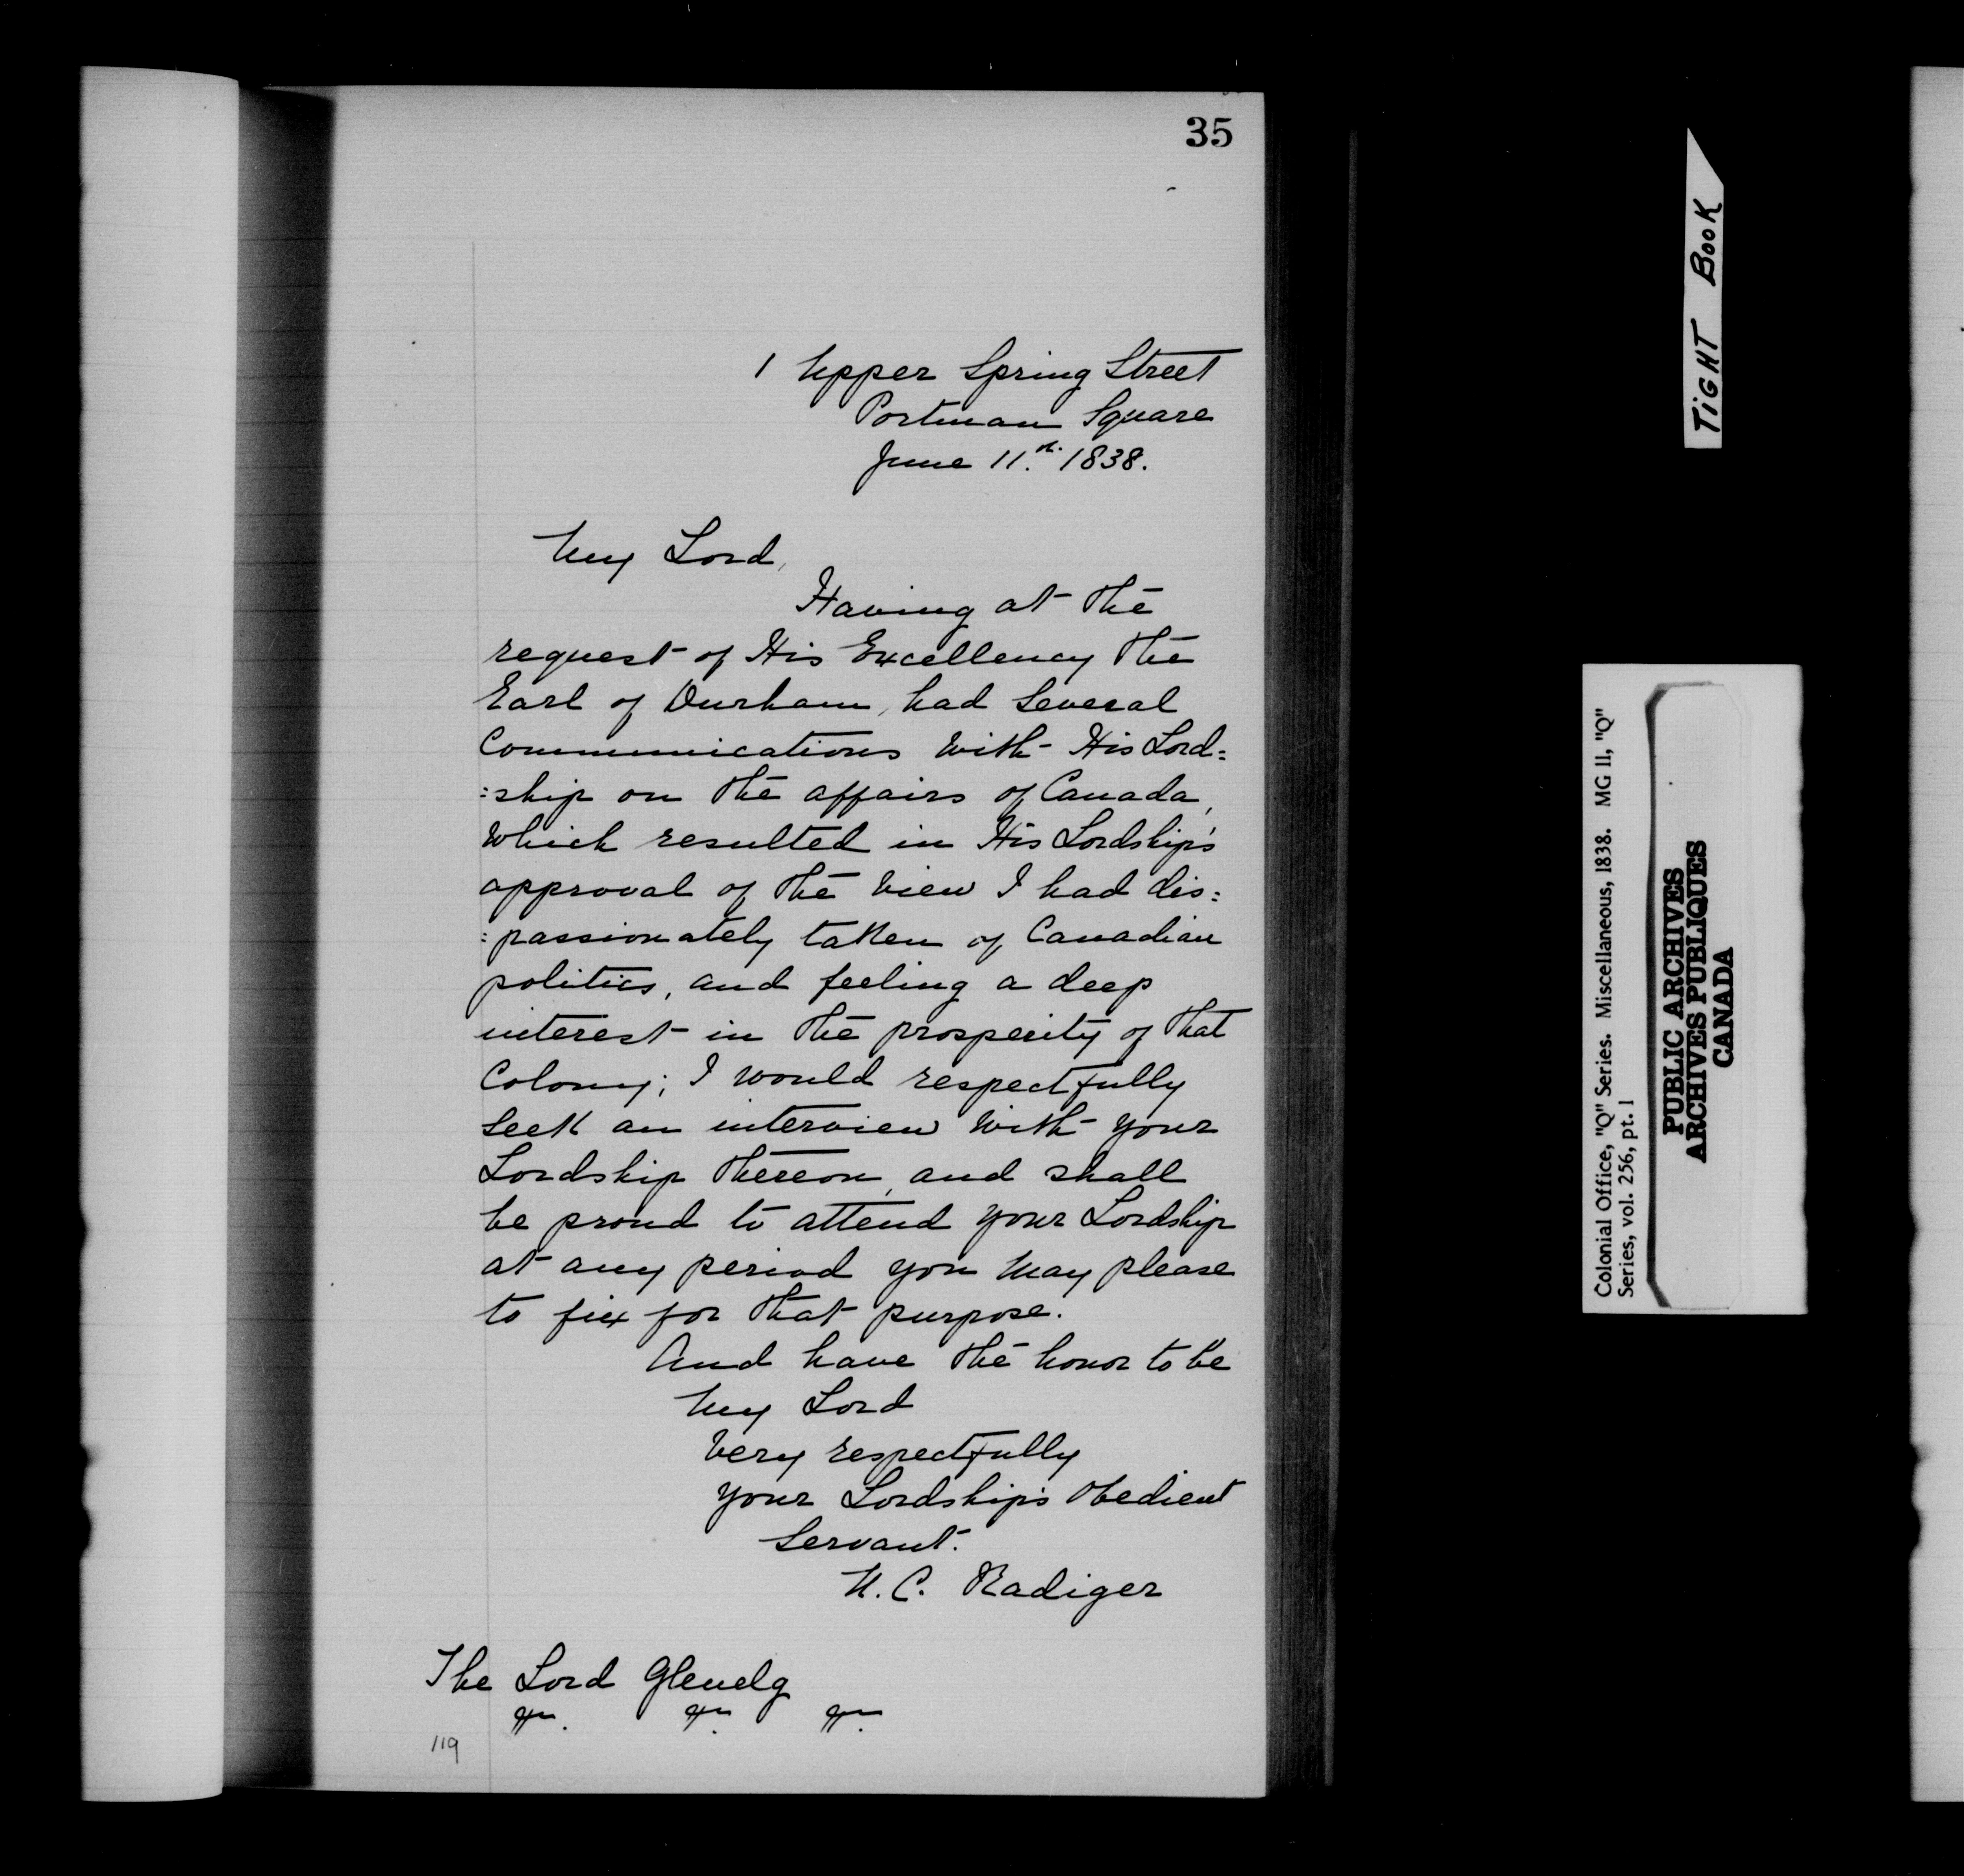 35
1 Upper Spring Street
Portman Square
June 11.th 1838.
My Lord,
Having at the
request of His Excellency the
Earl of Durham, had Several
Communications with His Lord=
=ship on the affairs of Canada,
which resulted in His Lordship's
approval of the view I had dis=
=passionately taken of Canadian
politics, and feeling a deep
interest in the prosperity of that
Colony; I would respectfully
seek an interview with your
Lordship thereon, and shall
be proud to attend your Lordship
at any period you may please
to fix for that purpose.
And have the honor to be
My Lord
Very respectfully
Your Lordship's Obedient
Servant.
Radiger
The Lord Glenelg
&c. &c. &c.
119
TIGHT BOOK
Colonial Office, "Q" Series. Miscellaneous, 1838. MG 11, "Q"
Series, vol. 256, pt. 1
PUBLIC ARCHIVES
ARCHIVES PUBLIQUES
CANADA